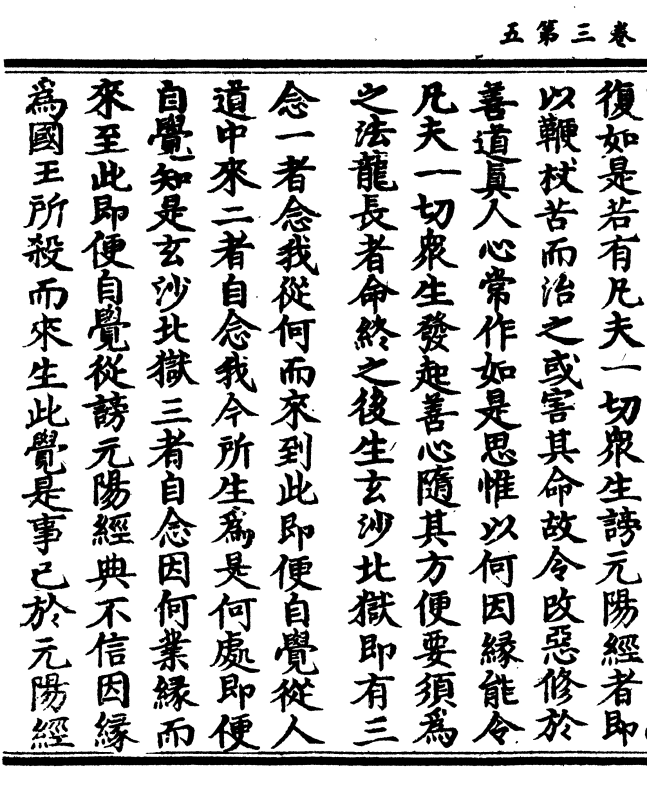 卷三第五
復如是若有凡夫一切衆生謗元陽經者即
以鞭杖苦而治之或害其命故令改惡修於
善道眞人心常作如是思惟以何因緣能令
凡夫一切衆生發起善心隨其方便要須爲
之法龍長者命終之後生玄沙北獄即有三
念一者念我從何而來到此即便自覺從人
道中來二者自念我今所生爲是何處即便
自覺知是玄沙北獄三者自念因何業緣而
來至此即便自覺從謗元陽經典不信因緣
爲國王所殺而來生此覺是事已於元陽經